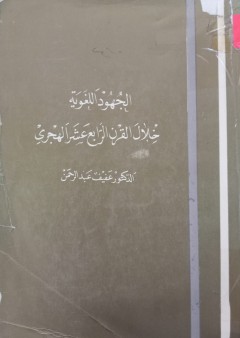 الجُهُود اللغَويَة
خِلال القَرن الرَابع عَشَر الهجري
الدكتور عَفيف عَبد الرحمن